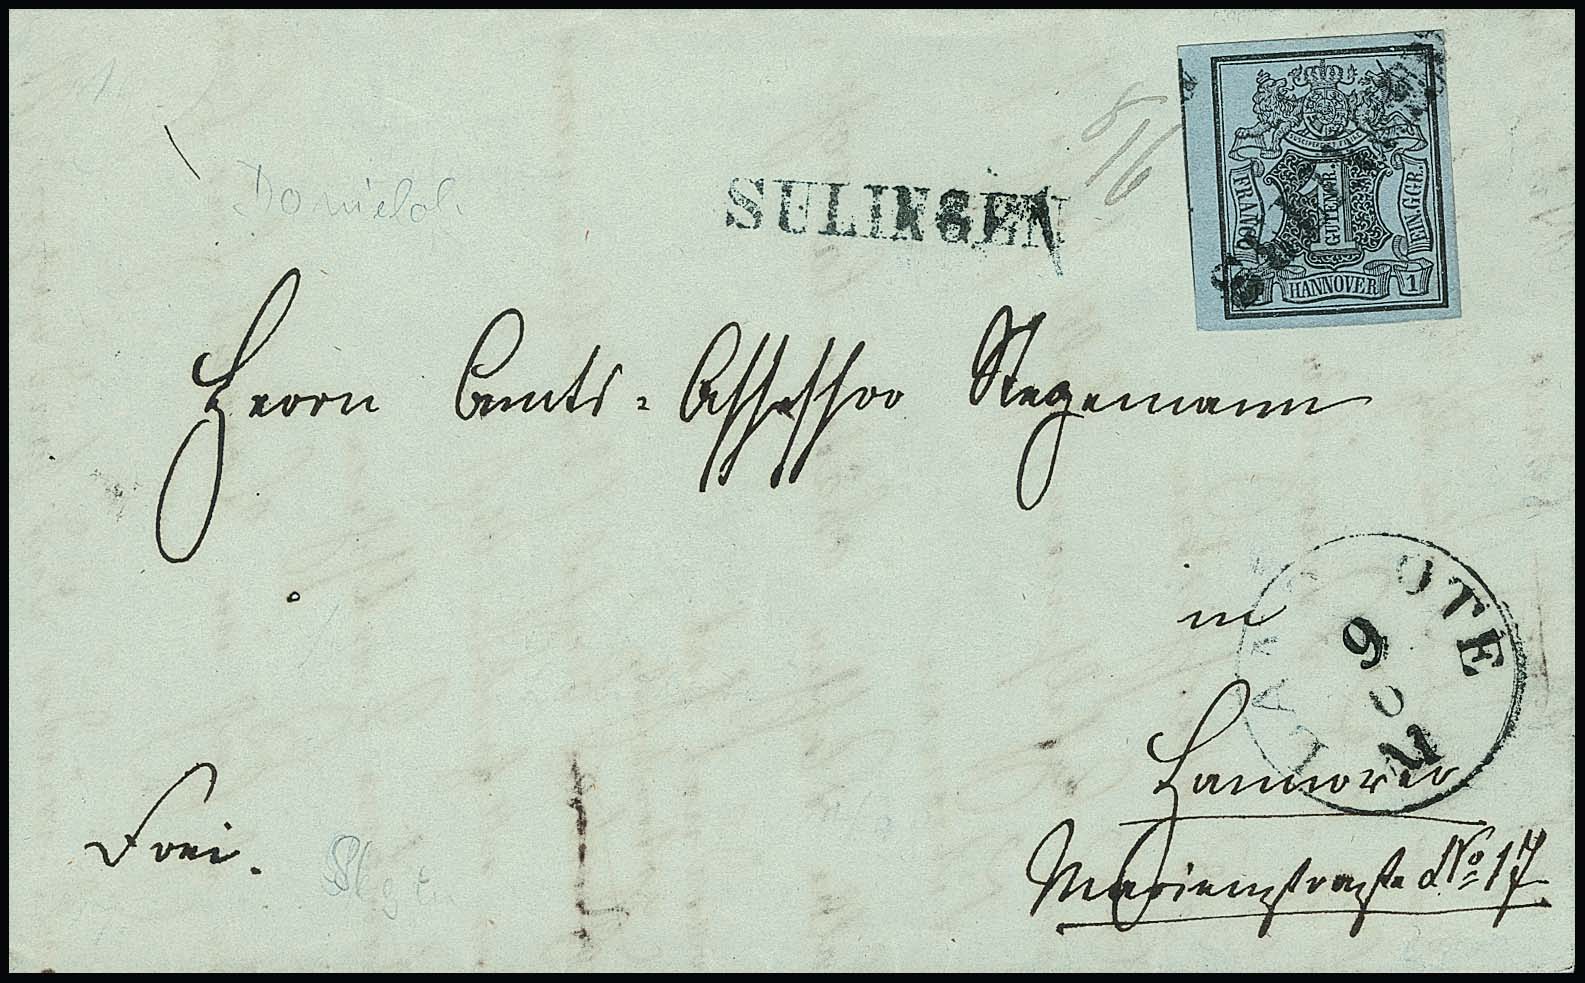 8/6
SULINGEN
FRANCO
1 GUTENGR.
EIN.GGR.
HANNOVER
1
Herrn Amts-Assessor Stegemann
in
Hannover
Marienstraße No 17.
Frei.
OTE
9
6